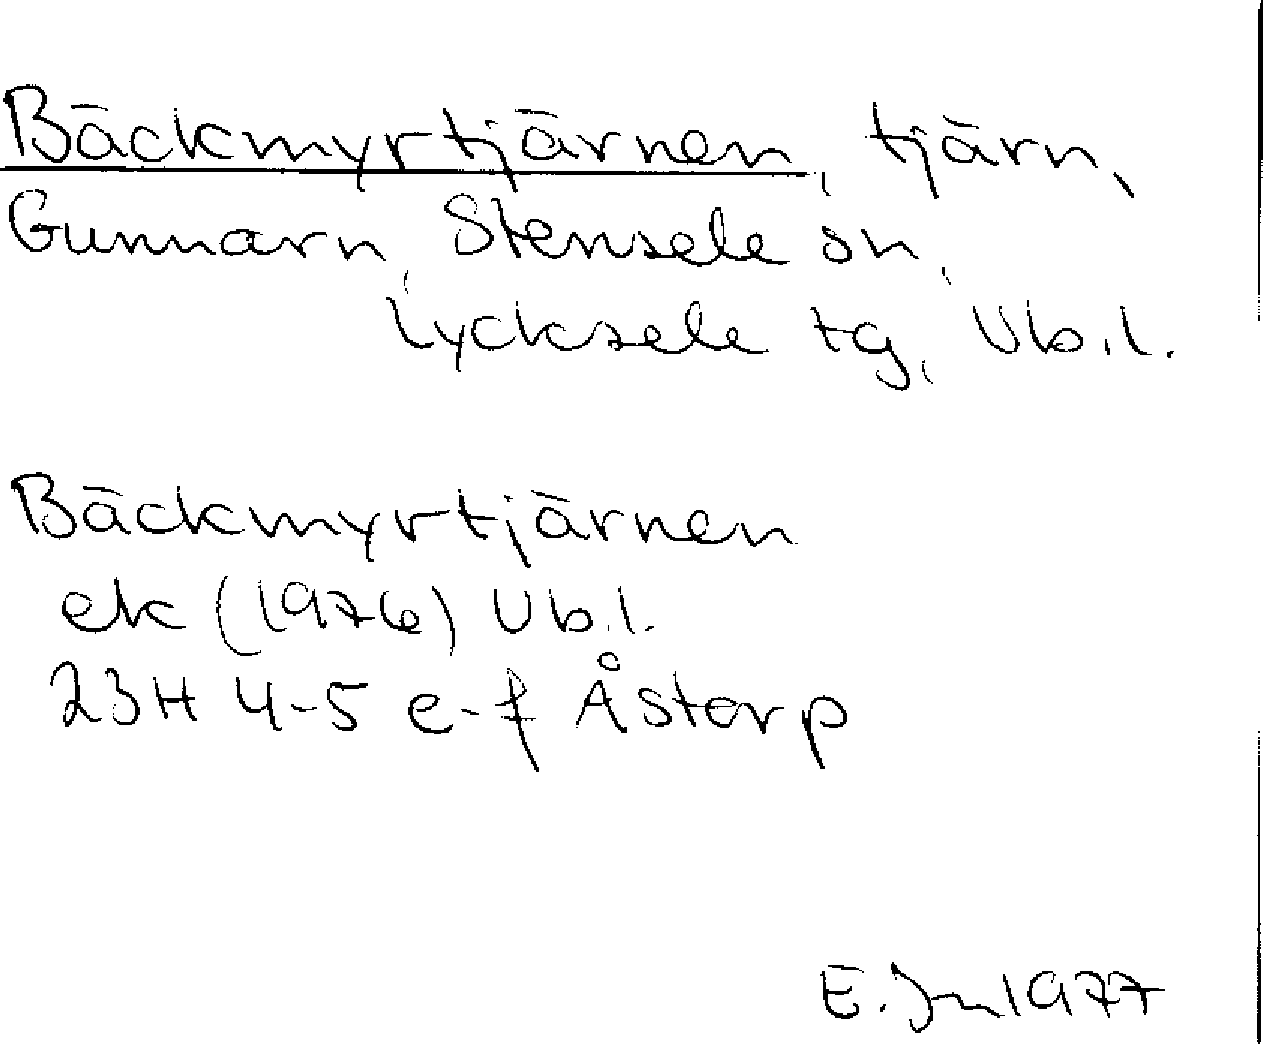 Bäckmyrtjärnen, tjärn,
Gunnarn, Stensele sn,
Lycksele tg, Vb.l.
Bäckmyrtjärnen
ek (1976) Vb.l.
23H 4-5 e-f Åstorp
E. 1977